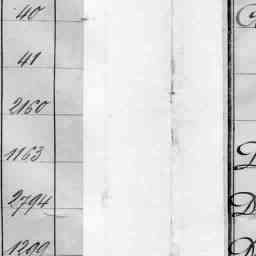 40
41
2160
1163
2794
1299